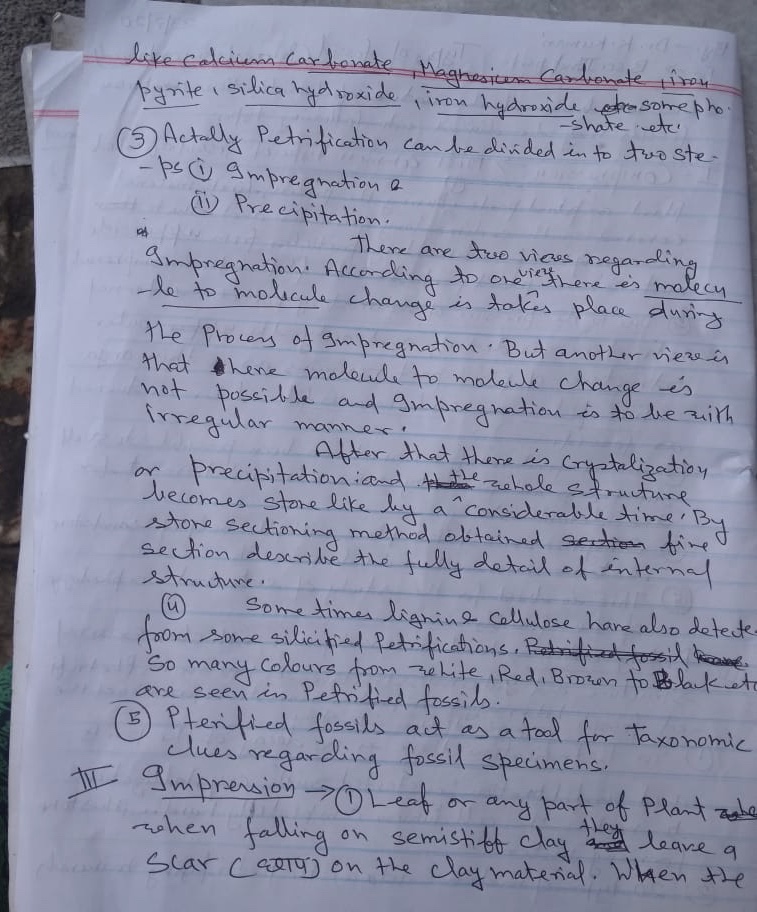 like Calcium Carbonate, Magnesium Carbonate, iron
pyrite, silica hydroxide, iron hydroxide some pho-
-shate etc.
③ Actally Petrification can be divided in to two ste-
-ps ⓘ Impregnation &
ⓘⓘ Precipitation.
There are two views regarding
Impregnation. According to one view there is malecu
-le to molecule change is takes place during
the Process of Impregnation. But another view is
that here molecule to moleule change is
not possible and Impregnation is to be with
irregular manner.
After that there is Cryatalization
or precipitation and the whole structure
becomes stone like by a considerable time. By
stone sectioning method obtained section fine
section describe the fully detail of internal
structure.
④ Some times lignin & Cellulose have also detecte
from some silicified Petrifications. Petrified fossil
So many Colours from white, Red, Brown to Black etc
are seen in Petrified fossils.
⑤ Pterified fossils act as a tool for Taxonomic
clues regarding fossil specimens.
III Impression → ① Leaf or any part of Plant
when falling on semistiff clay they leave a
Scar () on the clay material. When the